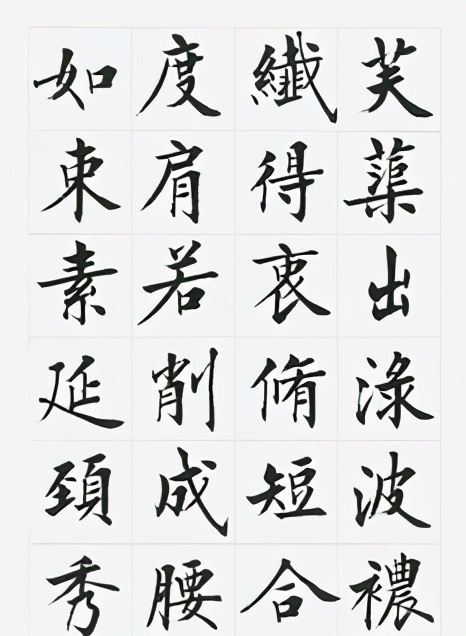 芙蕖出渌波襛
纖得衷脩短合
度肩若削成腰
如束素延頚秀